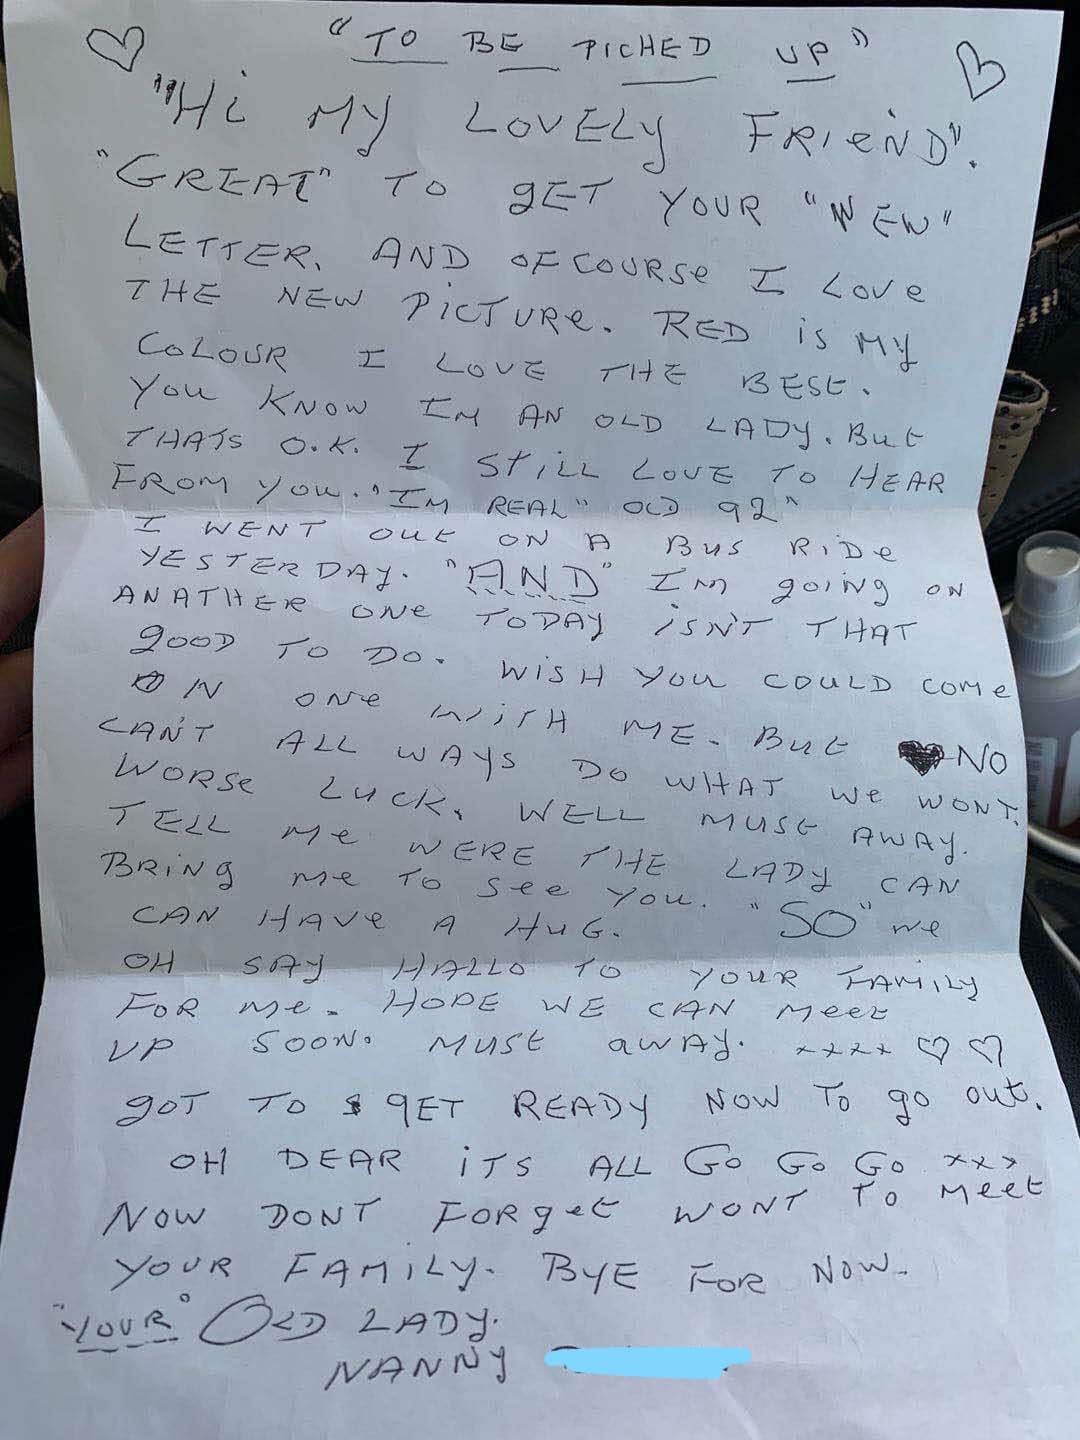 "TO BE PICHED UP"
"Hi MY LOVELY FRIEND".
"GREAT" TO gET YOUR "NEW"
LETTER. AND OFCOURSE I LOVE
THE NEW PICTURE. RED is MY
COLOUR I LOVE THE BEST.
YOU KNOW IM AN OLD LADY. BUT
THATS O.K. I STILL LOVE TO HEAR
FROM YOU. "IM REAL" OLD 92"
I WENT OUT ON A BUS RIDE
YESTERDAY. "AND" IM going ON
ANATHER ONE TODAY iSN'T THAT
gOOD TO DO. WISH YOU COULD COME
ON ONE WITH ME. BUT NO
CAN'T ALL WAYS DO WHAT WE WONT.
WORSE LUCK. WELL MUST AWAY.
TELL ME WERE THE LADY CAN
BRING ME TO SEE YOU. "SO" WE
CAN HAVE A HUG.
OH SAY HALLO TO YOUR FAMILY
FOR ME. HOPE WE CAN MEET
UP SOON. MUST AWAY. xxxx
gOT TO gET READY NOW TO go out.
OH DEAR iTS ALL GO GO GO xxx
NOW DONT FORgET WONT TO MEET
YOUR FAMILY. BYE FOR NOW.
"YOUR" OLD LADY.
NANNY